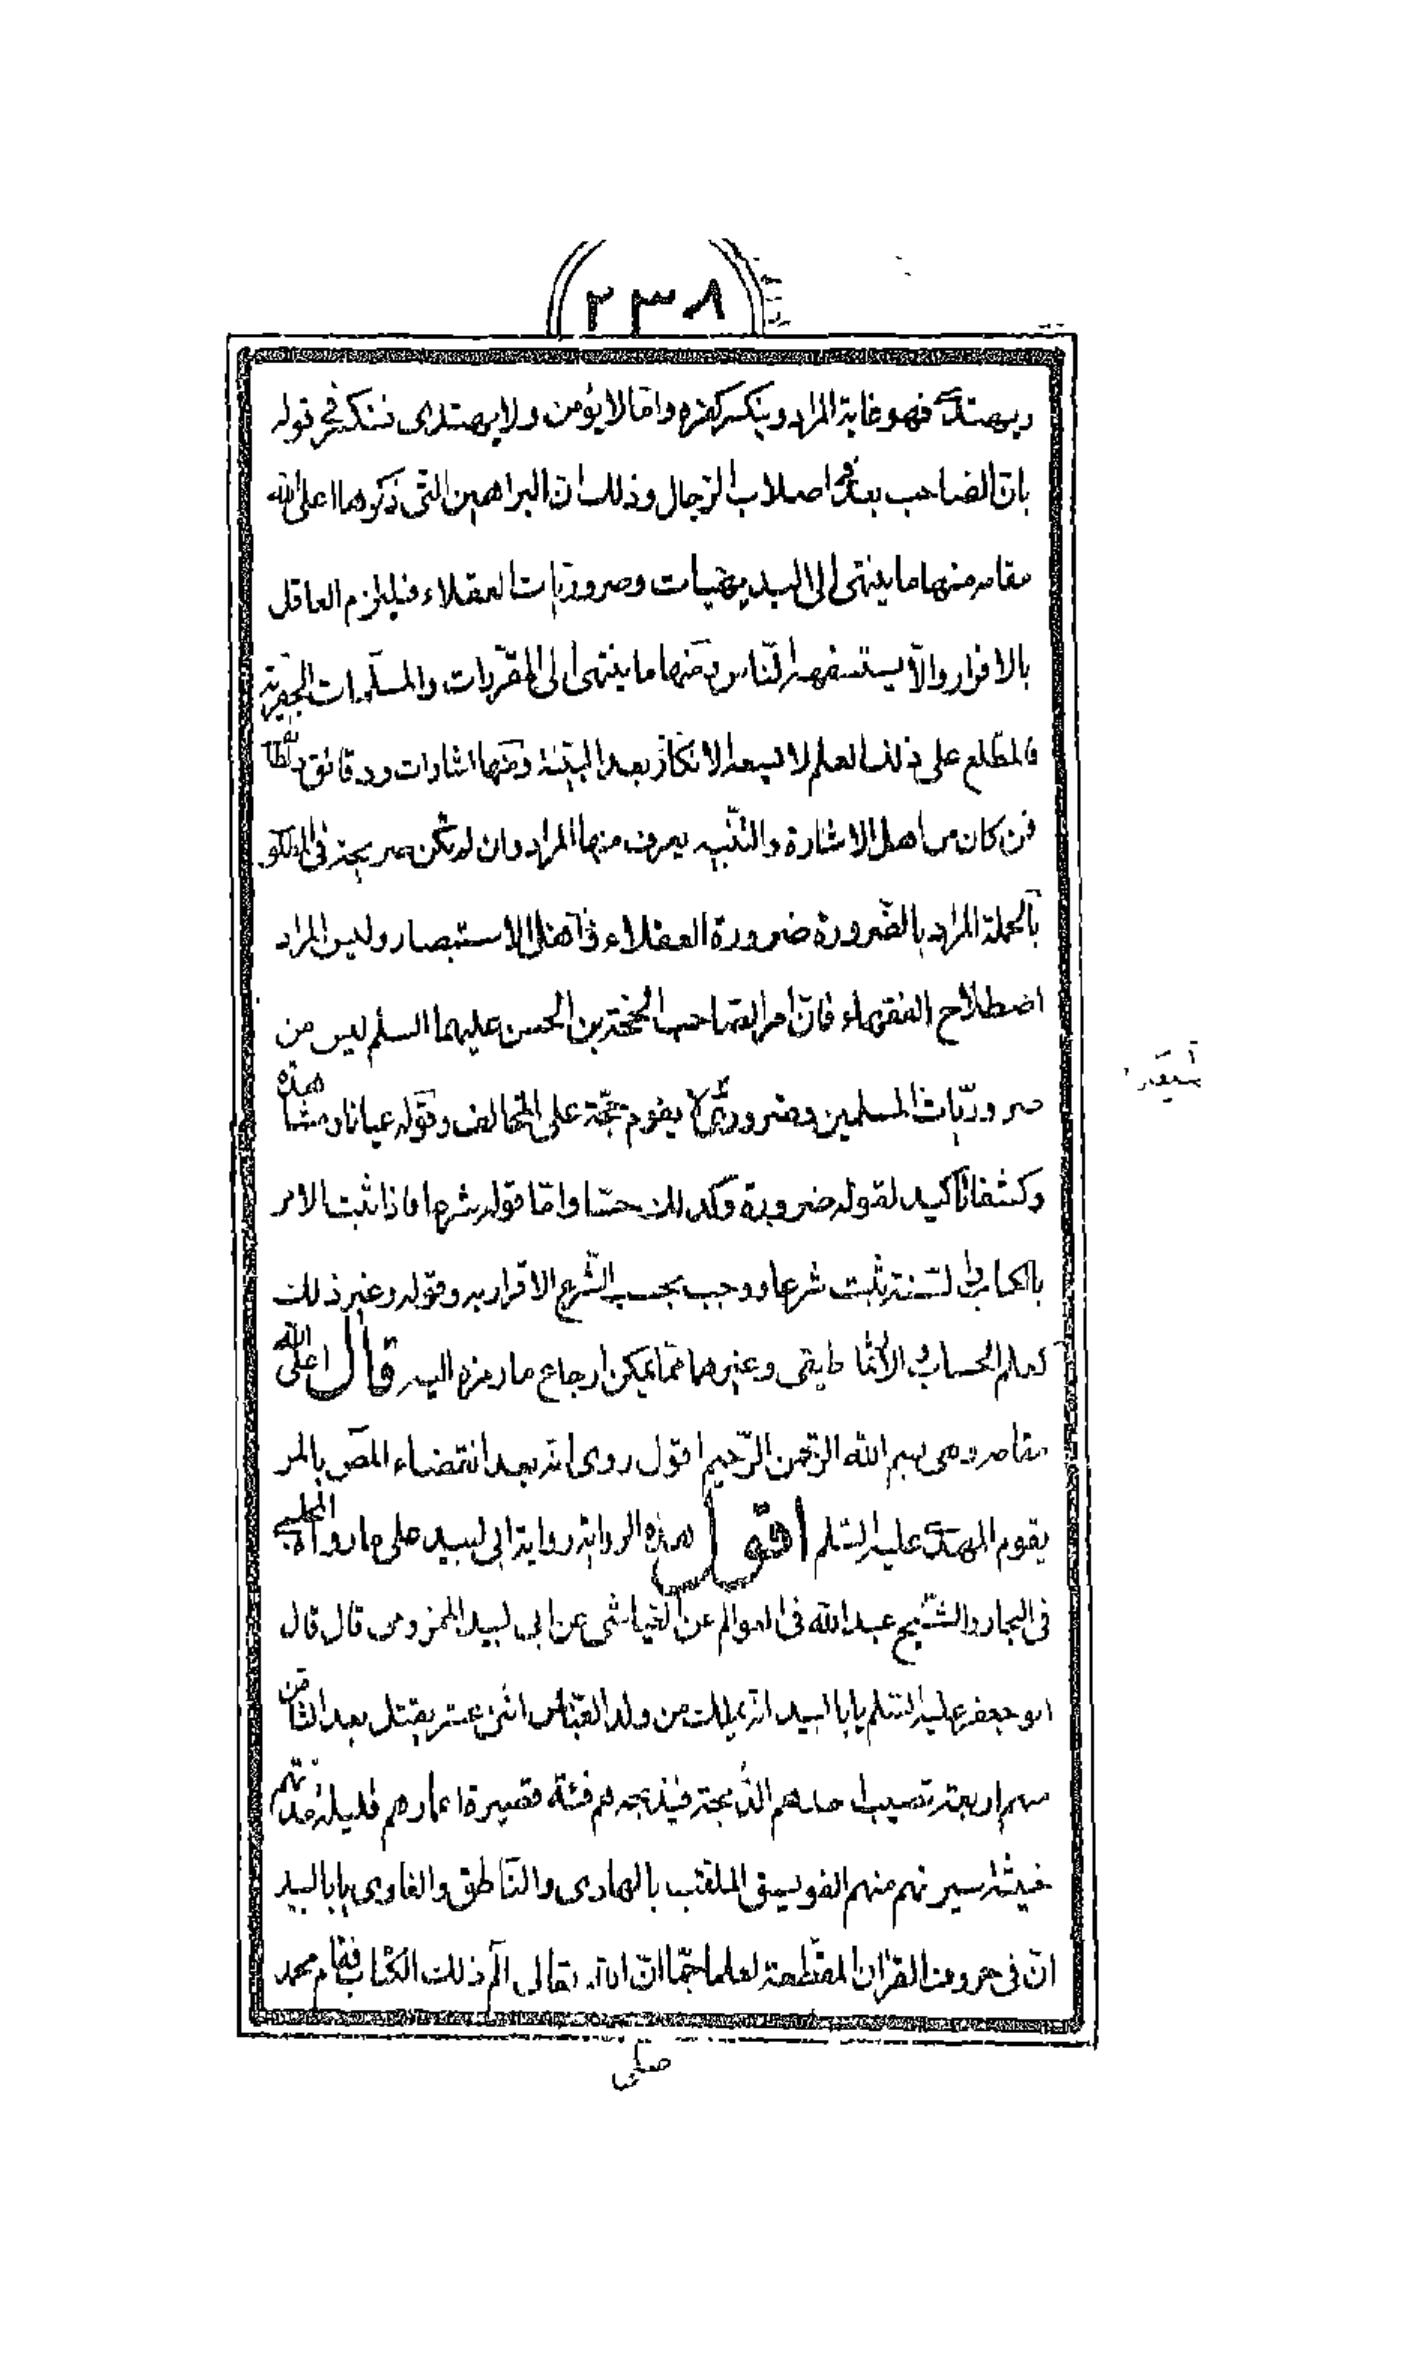 ٢٣٨
ويهتدى فهو غاية المراد وينكسر كفره واما لا يؤمن ولا يهتدى فينكسر قوله
بان الصاحب بعد فى اصلاب الرجال وذلك ان البراهين التى ذكرها اعلى الله
مقامه منها ما ينتهى الى البديهيات وضروريات العقلاء فيلزم العاقل
بالاقرار والّا يستسفهه الناس ومنها ما ينتهى الى المقرّبات والمسلمات الجفرية
فالمطلع على ذلك العلم لا يسعه الانكار بعد البينة ومنها اشارات ودقائق
فمن كان من اهل الاشارة والتنبيه يعرف منها المراد وان لم تكن صريحة فى
بالجملة المراد بالضرورة ضرورة العقلاء واهل الاستبصار وليس المراد
اصطلاح الفقهاء فان امر الصاحب الحجة بن الحسن عليهما السلم ليس من
ضروريات المسلمين وضرورى لا يقوم حجّة على المخالف وقوله عيانا ومشا هدة
وكشفا تأكيد لقوله ضرورة وكذلك حسّا وامّا قوله شرعا فاذا ثبت الامر
بالكتاب والسنة ثبت شرعا ووجب بحسب الشرع الاقرار به وقوله وغير ذلك
كعلم الحساب والارثماطيقى وغيرهما مما يمكن ارجاع ما رمزه اليه قال اعلى الله
مقامه وهى بسم الله الرحمن الرّحيم اقول روى انه بعد انقضاء المص بالمر
يقوم المهدى عليه السلم اقول هذه الرواية رواية ابى لبيد على ما رواه المجلسى
فى البحار والشيخ عبد الله فى العوالم عن العياشى عن ابى لبيد المخزومى قال قال
ابو جعفر عليه السلم يا ابا لبيد انه يملك من ولد العبّاس اثنى عشر يقتل بعد الثامن
منهم اربعة تصيب احدهم الذبحة فيذبحه هم فئة قصيرة اعمارهم قليلة مدتهم
خبيثة سيرتهم منهم الفويسق الملقب بالهادى والناطق والغاوى يا ابا لبيد
انّ فى حروف القرآن المقطعة لعلما جمّا ان الله تعالى الم ذلك الكتاب فقام محمد
صلى